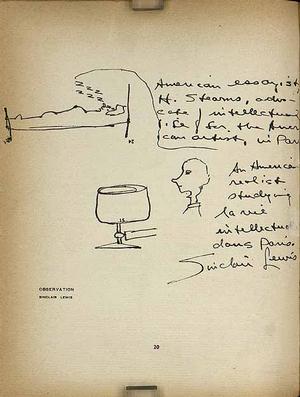 American essayist
H. Stearns, advo-
cate of intellectual
life for the Ameri
can artist, in Paris
An American
realist
studying
la vie
intellectuelle
dans Paris.
Sinclair Lewis
OBSERVATION
SINCLAIR LEWIS
20